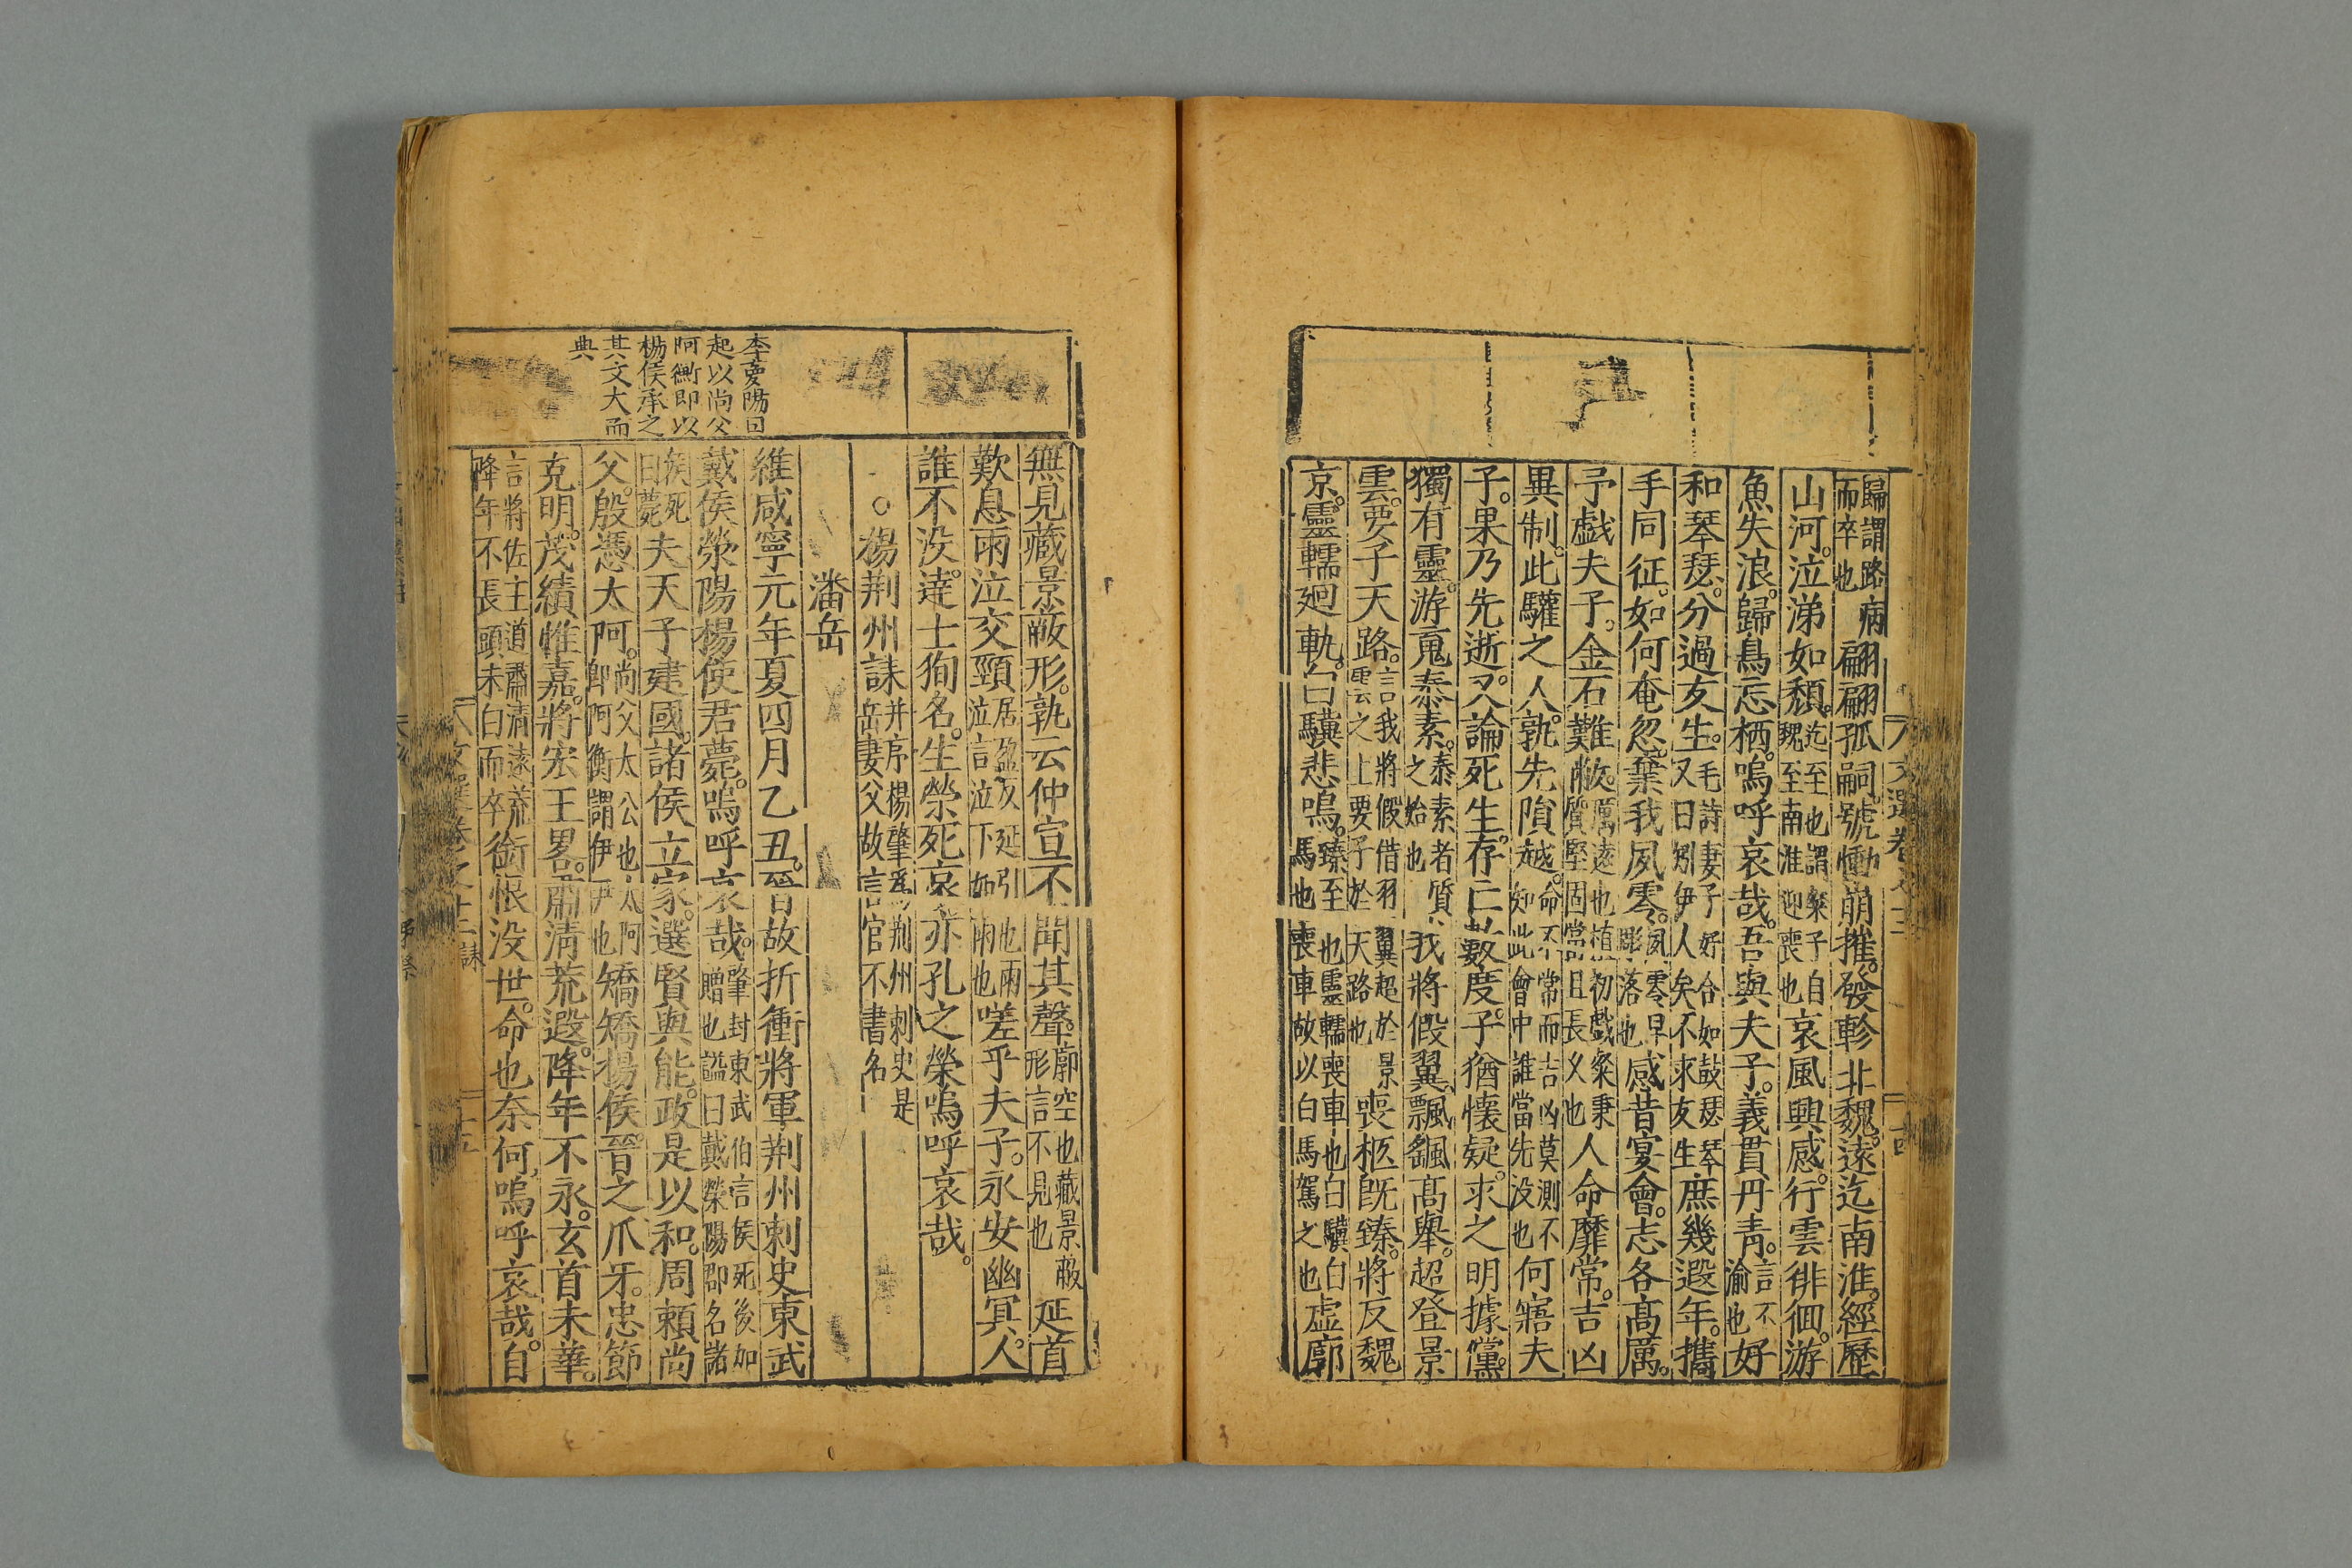 歸謂路病而卒也翩翩孤嗣號慟崩摧發軫北魏遠迄南淮經歷
山河泣涕如頹迄至也謂粲子自魏至南淮迎喪也哀風興感行雲徘徊游
魚失浪歸鳥忘栖嗚呼哀哉吾與夫子義貫丹青言不渝也好
和琴瑟分過友生毛詩妻子好合如鼓瑟琴又曰矧伊人矣不求友生庶幾遐年攜
手同征如何奄忽棄我夙零夙零早彫落也感昔宴會志各高厲
予戲夫子金石難敝厲遠也植初戲粲秉質堅固當且長乂也人命靡常吉凶
異制此驩之人孰先隕越命不常而吉凶莫測不知此會中誰當先没也何寤夫
子果乃先逝又論死生存亡數度子猶懷疑求之明據儻
獨有靈游䰟泰素泰素者質之始也我將假翼飄颻高舉超登景
雲要子天路言我將假借羽翼超於景雲之上要子於天路也喪柩旣臻將反魏
京靈轜廻軌白驥悲鳴臻至也靈轜喪車也白驥白馬也喪車故以白馬駕之也虛廓
無見藏景蔽形孰云仲宣不聞其聲廓空也藏景蔽形言不見也延首
歎息雨泣交頸居盈反延引也雨泣言泣下如雨也嗟乎夫子永安幽冥人
誰不没達士狥名生榮死哀亦孔之榮嗚呼哀哉
○楊荆州誄并序楊肇爲荆州刺史是岳妻父故言官不書名
潘岳
維咸寧元年夏四月乙丑晉故折衝將軍荆州刺史東武
戴侯滎陽楊使君薨嗚呼哀哉肇封東武伯言侯死後加贈也謚曰戴滎陽郡名諸
侯死曰薨夫天子建國諸侯立家選賢與能政是以和周賴尚
父殷憑太阿尚父太公也太阿卽阿衡謂伊尹也矯矯揚侯晉之爪牙忠節
克明茂績惟嘉將宏王畧肅清荒遐降年不永玄首未華
言將佐主道肅清遠荒降年不長頭未白而卒銜恨没世命也奈何嗚呼哀哉自
李㝫陽曰
起以尚父
阿衡即以
楊侯承之
其文大而
典